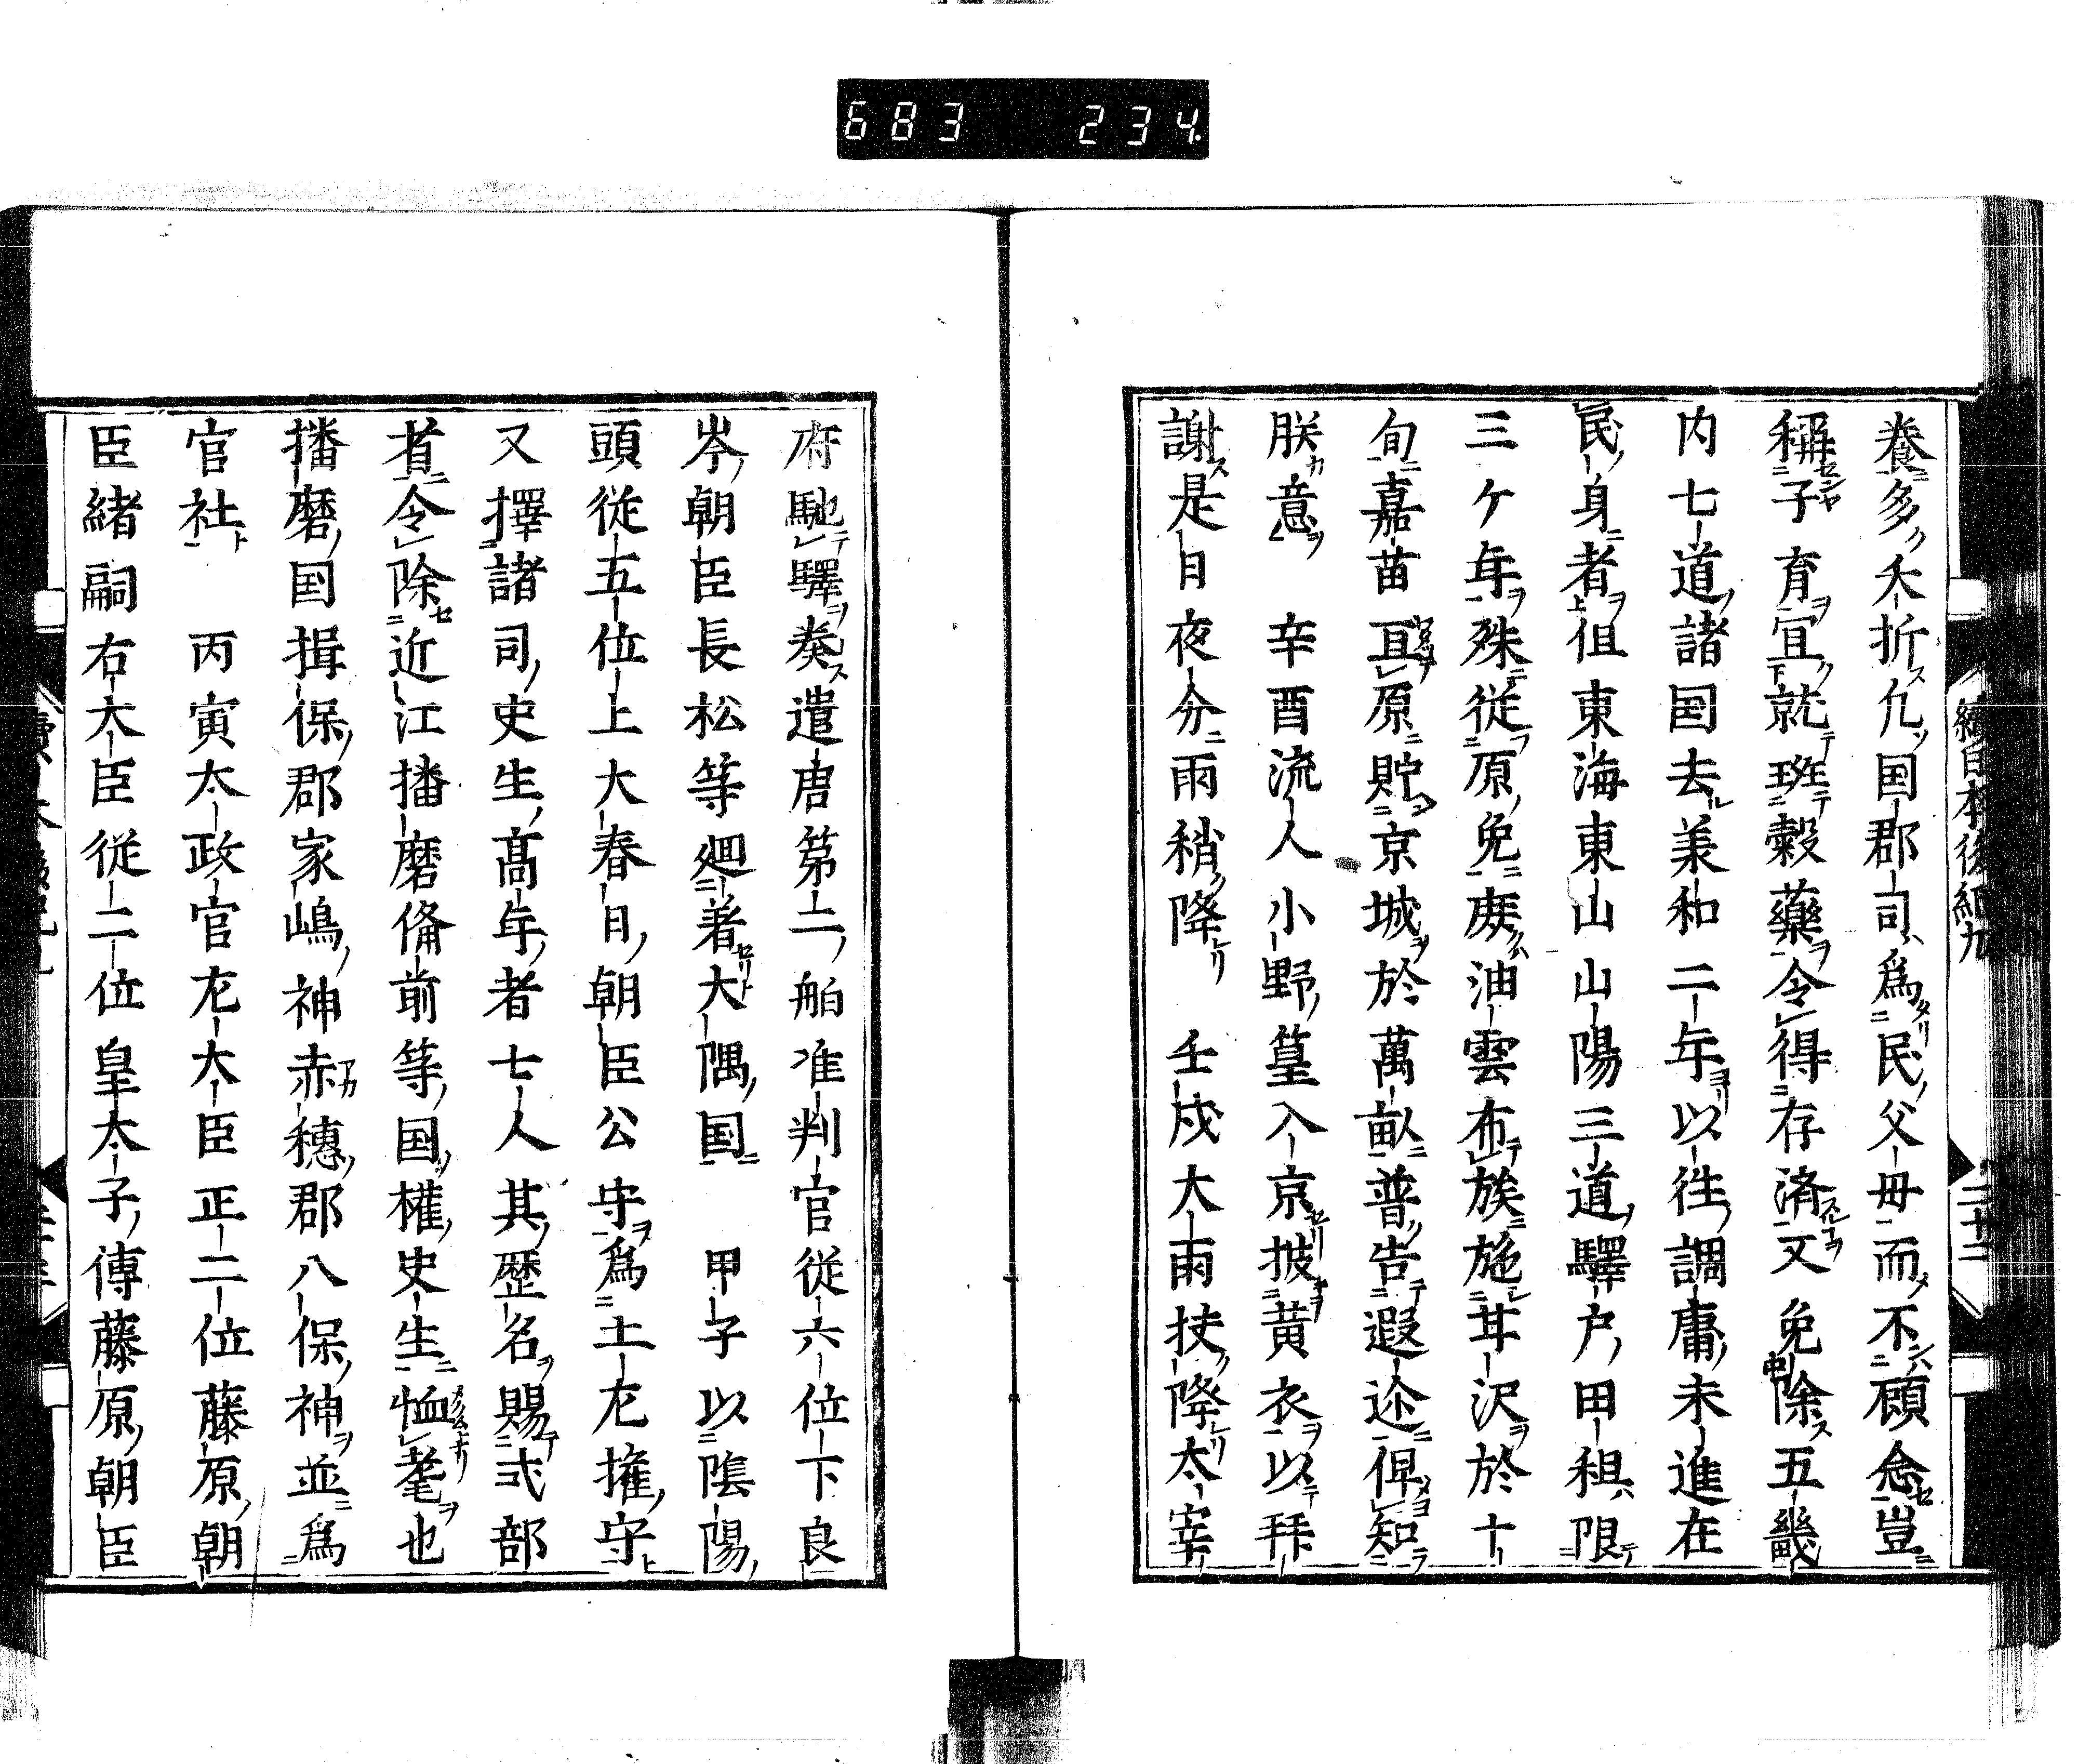 683 234
續日本後紀九
二十二
養多夭折凢国郡司爲民父毋而不顧念豈
稱子育宜就班糓藥令得存済又免除五畿
内七道諸国去兼和二年以徃調庸未進在
民身者伹東海東山山陽三道驛户田租限
三ケ年殊従原免庻油雲布族施甘沢於十
旬嘉苗亙原貯京城於萬畝普告遐迩俾知
朕意 辛酉流人小野篁入京披黄衣以拜
謝是日夜分雨稍降 壬戌大雨扶降太宰
府馳驛奏遣唐第二舶准判官従六位下良
岑朝臣長松等廻著大隅国 甲子以陰陽
頭従五位上大春日朝臣公守爲土左權守
又擇諸司史生髙年者七人其歴名賜式部
省令除近江播磨備前等国權史生恤耄也
播磨国揖保郡家嶋神赤穗郡八保神並爲
官社 丙寅太政官左大臣正二位藤原朝
臣緒嗣右大臣従二位皇太子傳藤原朝臣